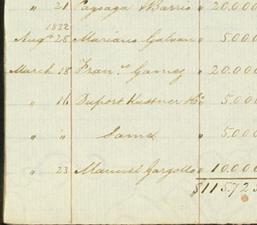 " 21 Caysaga & Barris " 20.000
1832
Augt 28 Mariano Galvan " 5000
March 18 Franco Gamez " 20.000
" 16 Duport Kustner & Co " 5.000
" " Same " 5.000
" 23 Manuel Gargollo " 10.000
$115,723